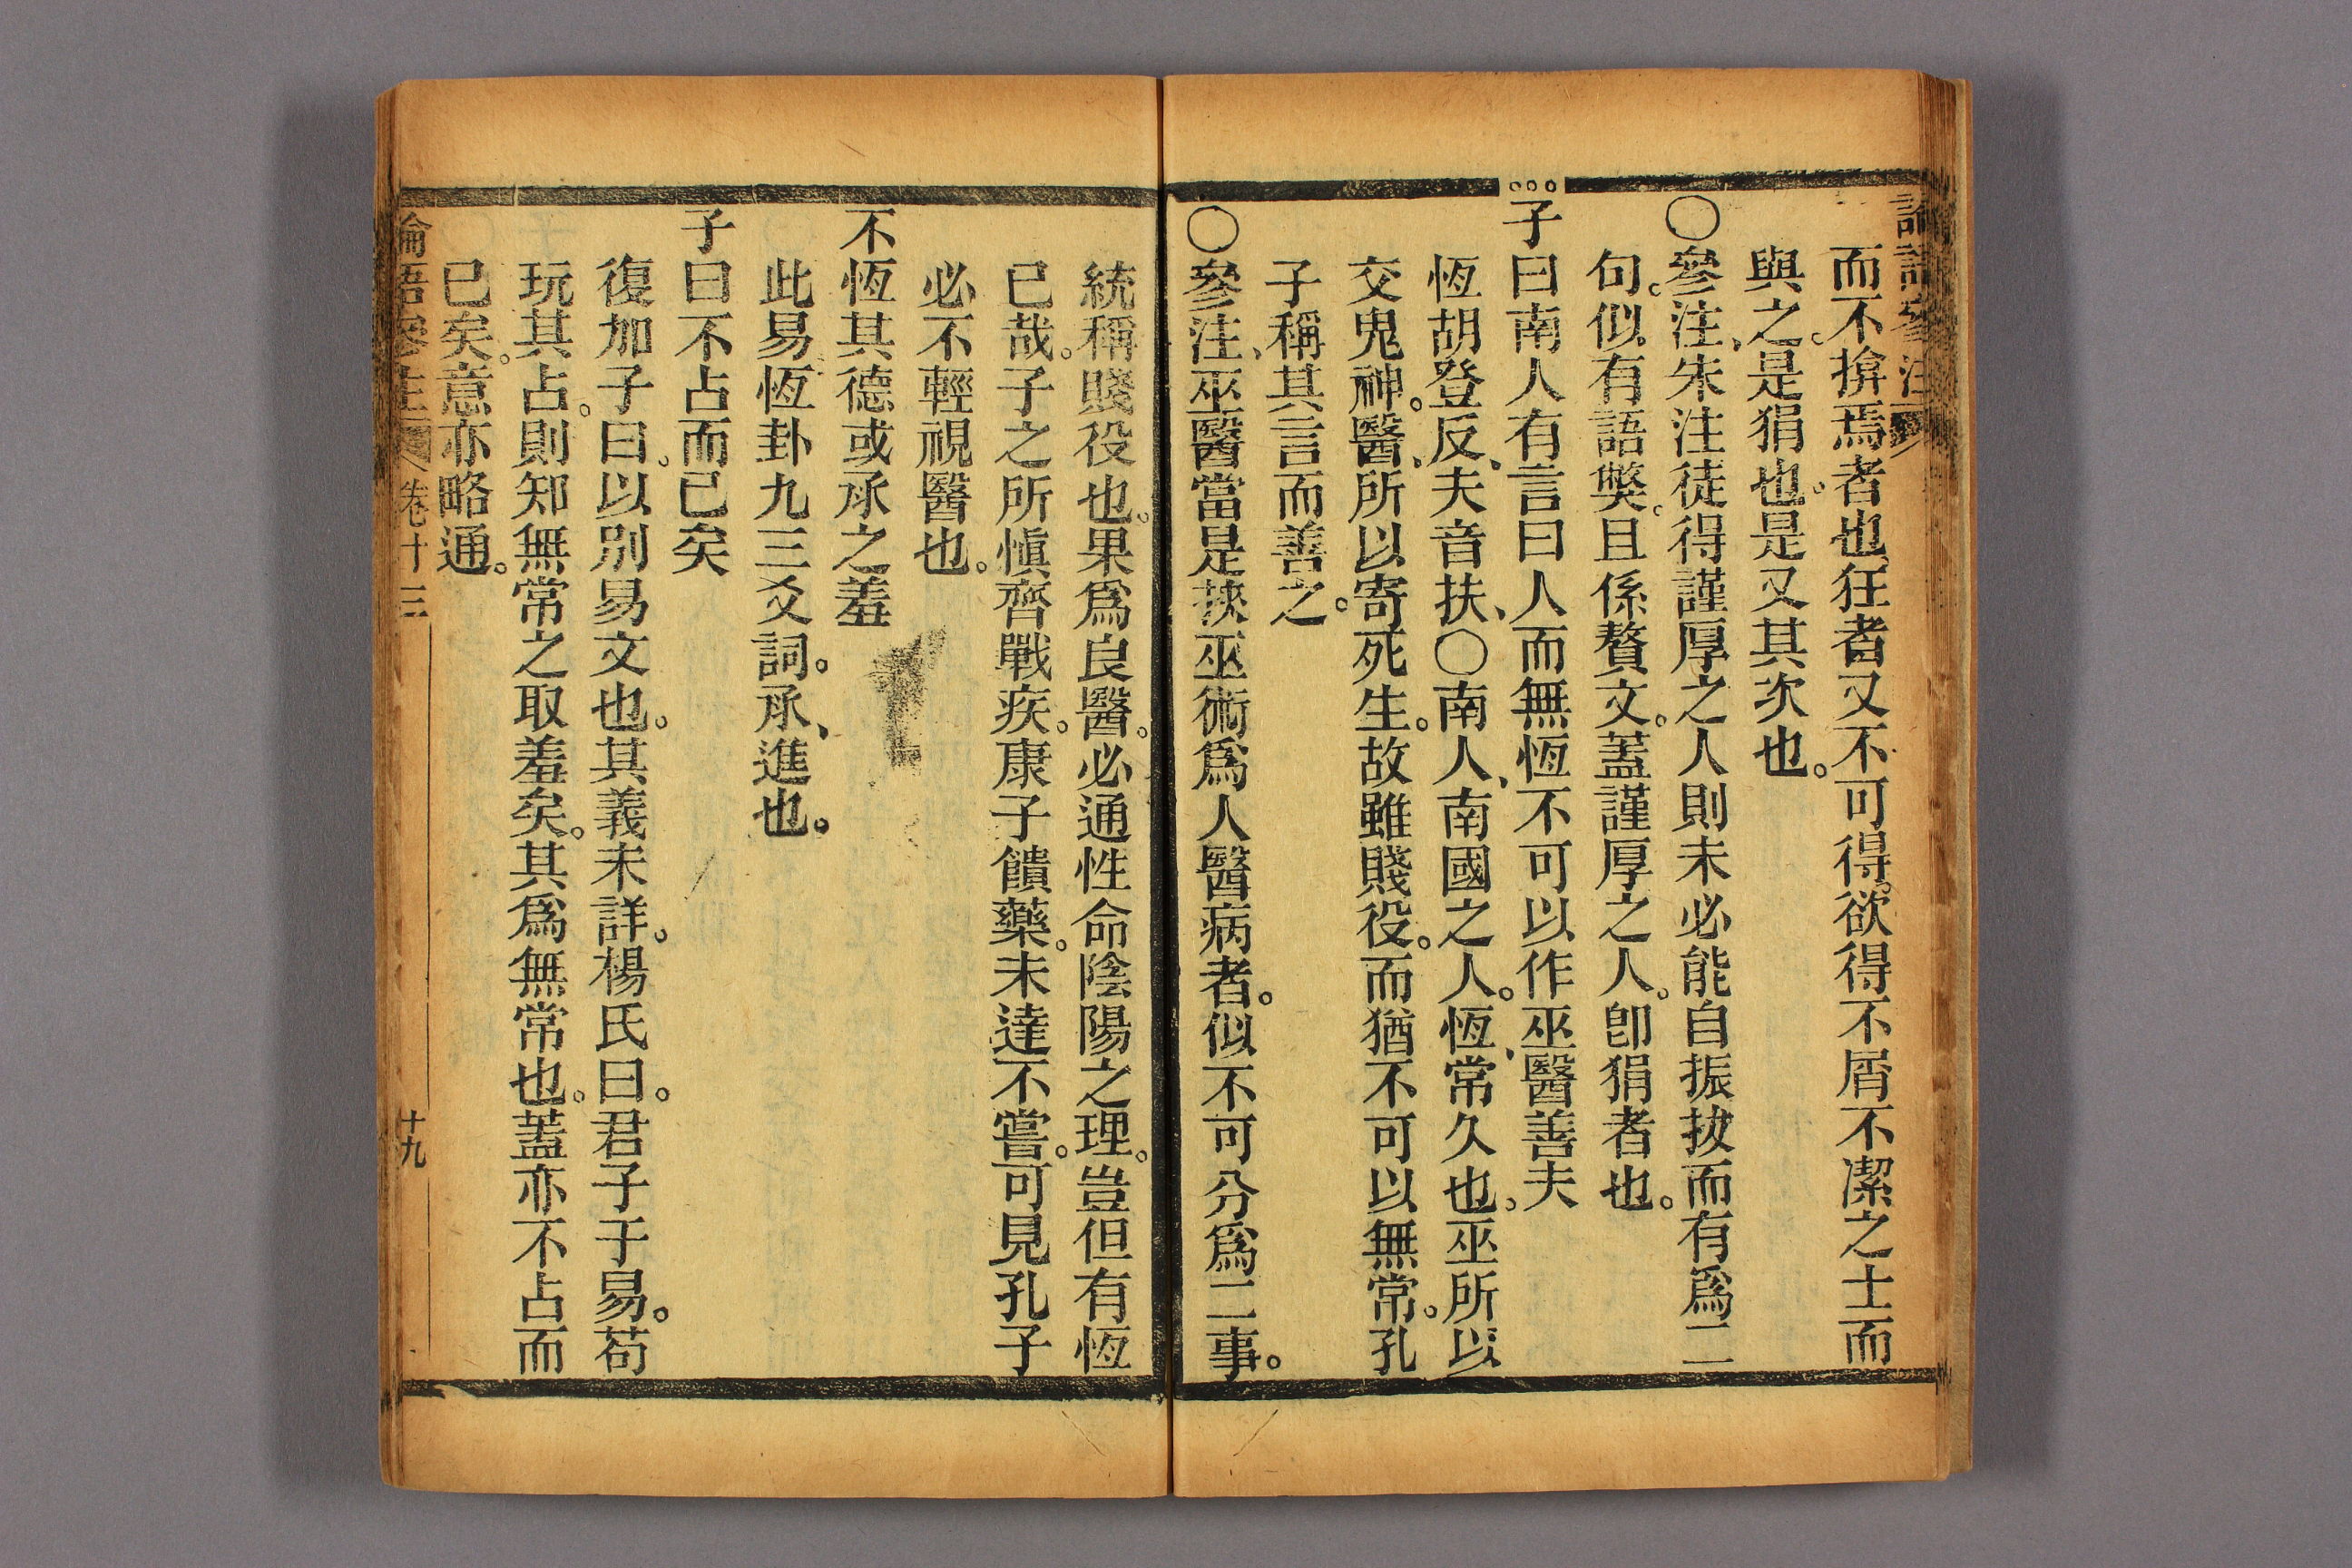 論語參注
而不揜焉者也。狂者又不可得。欲得不屑不潔之士而
與之。是狷也。是又其次也。
〇參注、朱注徒得謹厚之人則未必能自振拔而有爲二
句。似有語獘。且係贅文。蓋謹厚之人。卽狷者也。
子曰南人有言曰人而無恆不可以作巫醫善夫
恆胡登反、夫音扶、〇南人、南國之人。恆、常久也。巫所以
交鬼神。醫、所以寄死生。故雖賤役。而猶不可以無常。孔
子稱其言而善之。
〇參注、巫醫當是挾巫術爲人醫病者。似不可分爲二事。
統稱賤役也。果爲良醫。必通性命陰陽之理。豈但有恆
已哉。子之所愼齊戰疾。康子饋藥。未達不嘗。可見孔子
必不輕視醫也。
不恆其德或承之羞
此易恆卦九三爻詞。承、進也。
子曰不占而已矣
復加子曰。以別易文也。其義未詳。楊氏曰。君子于易。苟
玩其占。則知無常之取羞矣。其爲無常也。蓋亦不占而
已矣。意亦略通。
論語參注 卷十三 十九